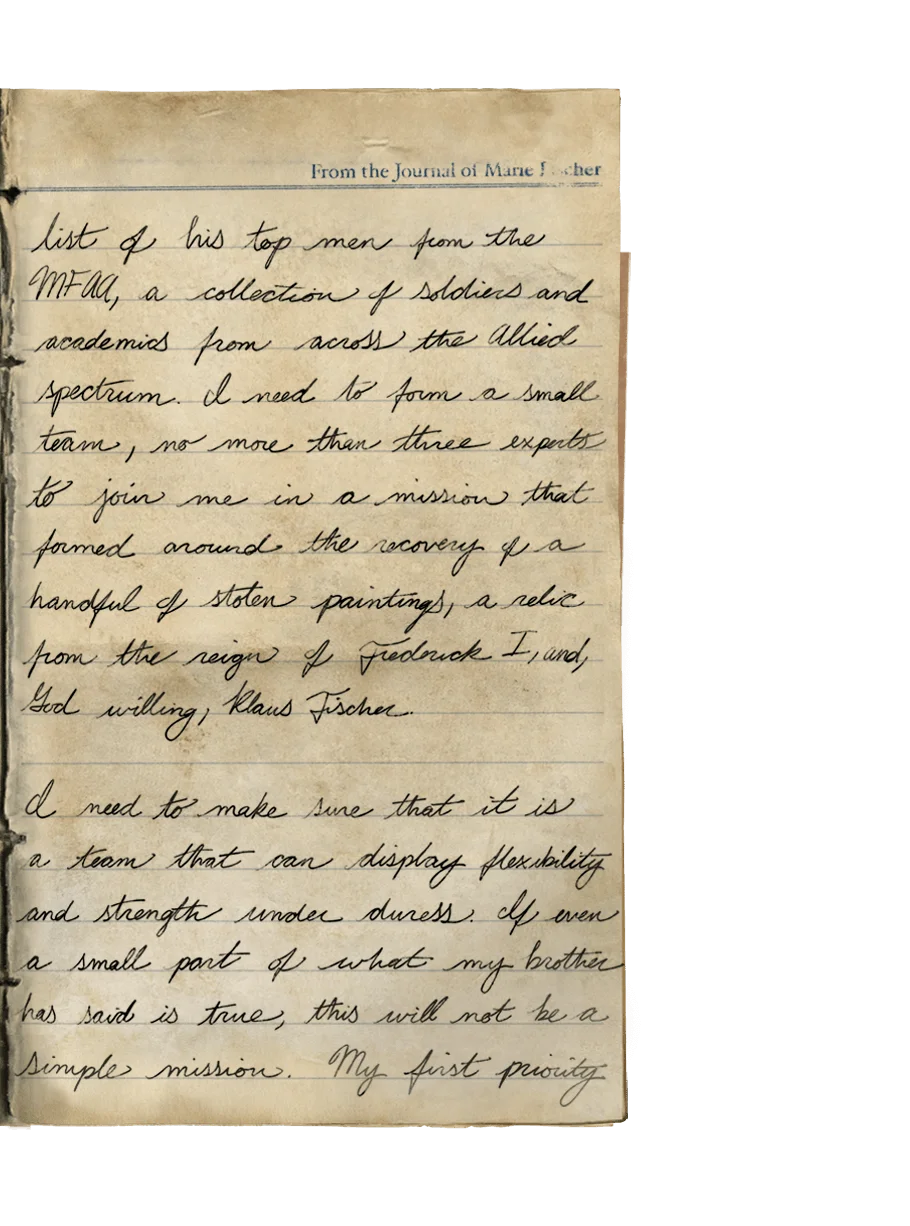 From the Journal of Marie Fischer
list of his top men from the
MFAA, a collection of soldiers and
academics from across the Allied
spectrum. I need to form a small
team, no more than three experts
to join me in a mission that
formed around the recovery of a
handful of stolen paintings, a relic
from the reign of Frederick I, and,
God willing, Klaus Fischer.
I need to make sure that it is
a team that can display flexibility
and strength under duress. If even
a small part of what my brother
has said is true, this will not be a
simple mission. My first priority